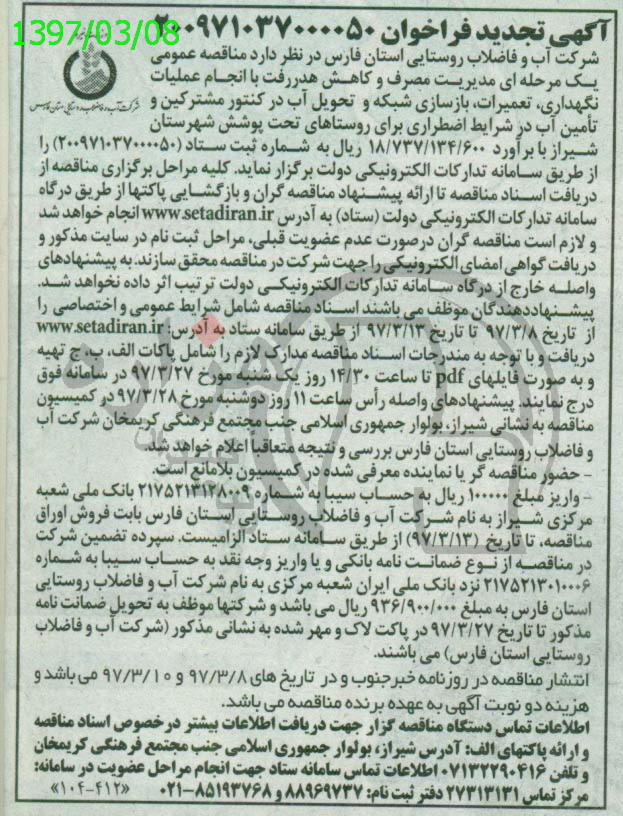 1397/03/08
آگهی تجدید فراخوان ۲۰۰۹۷۱۰۳۷۰۰۰۰۵۰
شرکت آب و فاضلاب روستایی استان فارس در نظر دارد مناقصه عمومی
یک مرحله ای مدیریت مصرف و کاهش هدررفت با انجام عملیات
شرکت آب و فاضلاب روستایی استان فارس
نگهداری، تعمیرات، بازسازی شبکه و تحویل آب در کنتور مشترکین و
تأمین آب در شرایط اضطراری برای روستاهای تحت پوشش شهرستان
شیراز با برآورد ۱۸/۷۳۷/۱۳۴/۶۰۰ ریال به شماره ثبت ستاد (۲۰۰۹۷۱۰۳۷۰۰۰۰۵۰) را
از طریق سامانه تدارکات الکترونیکی دولت برگزار نماید. کلیه مراحل برگزاری مناقصه از
دریافت اسناد مناقصه تا ارائه پیشنهاد مناقصه گران و بازگشایی پاکتها از طریق درگاه
سامانه تدارکات الکترونیکی دولت (ستاد) به آدرس www.setadiran.ir انجام خواهد شد
و لازم است مناقصه گران درصورت عدم عضویت قبلی، مراحل ثبت نام در سایت مذکور و
دریافت گواهی امضای الکترونیکی را جهت شرکت در مناقصه محقق سازند. به پیشنهادهای
واصله خارج از درگاه سامانه تدارکات الکترونیکی دولت ترتیب اثر داده نخواهد شد.
پیشنهاددهندگان موظف می باشند اسناد مناقصه شامل شرایط عمومی و اختصاصی را
از تاریخ ۹۷/۳/۸ تا تاریخ ۹۷/۳/۱۳ از طریق سامانه ستاد به آدرس: www.setadiran.ir
دریافت و با توجه به مندرجات اسناد مناقصه مدارک لازم را شامل پاکات الف، ب، ج تهیه
و به صورت فایلهای pdf تا ساعت ۱۴/۳۰ روز یک شنبه مورخ ۹۷/۳/۲۷ در سامانه فوق
درج نمایند. پیشنهادهای واصله رأس ساعت ۱۱ روز دوشنبه مورخ ۹۷/۳/۲۸ در کمیسیون
مناقصه به نشانی شیراز، بولوار جمهوری اسلامی جنب مجتمع فرهنگی کریمخان شرکت آب
و فاضلاب روستایی استان فارس بررسی و نتیجه متعاقباً اعلام خواهد شد.
- حضور مناقصه گر یا نماینده معرفی شده در کمیسیون بلامانع است.
- واریز مبلغ ۱۰۰۰۰۰ ریال به حساب سیبا به شماره ۲۱۷۵۲۱۳۱۲۸۰۰۹ بانک ملی شعبه
مرکزی شیراز به نام شرکت آب و فاضلاب روستایی استان فارس بابت فروش اوراق
مناقصه، تا تاریخ (۹۷/۳/۱۳) از طریق سامانه ستاد الزامیست. سپرده تضمین شرکت
در مناقصه از نوع ضمانت نامه بانکی و یا واریز وجه نقد به حساب سیبا به شماره
۲۱۷۵۲۱۳۰۱۰۰۰۶ نزد بانک ملی ایران شعبه مرکزی به نام شرکت آب و فاضلاب روستایی
استان فارس به مبلغ ۹۳۶/۹۰۰/۰۰۰ ریال می باشد و شرکتها موظف به تحویل ضمانت نامه
مذکور تا تاریخ ۹۷/۳/۲۷ در پاکت لاک و مهر شده به نشانی مذکور (شرکت آب و فاضلاب
روستایی استان فارس) می باشند.
انتشار مناقصه در روزنامه خبرجنوب و در تاریخ های ۹۷/۳/۸ و ۹۷/۳/۱۰ می باشد و
هزینه دو نوبت آگهی به عهده برنده مناقصه می باشد.
اطلاعات تماس دستگاه مناقصه گزار جهت دریافت اطلاعات بیشتر درخصوص اسناد مناقصه
و ارائه پاکتهای الف: آدرس شیراز، بولوار جمهوری اسلامی جنب مجتمع فرهنگی کریمخان
و تلفن ۰۷۱۳۲۲۹۰۴۱۶ اطلاعات تماس سامانه ستاد جهت انجام مراحل عضویت در سامانه:
مرکز تماس ۲۷۳۱۳۱۳۱ دفتر ثبت نام: ۸۸۹۶۹۷۳۷ و ۸۵۱۹۳۷۶۸-۰۲۱ «۱۰۴-۴۱۲»